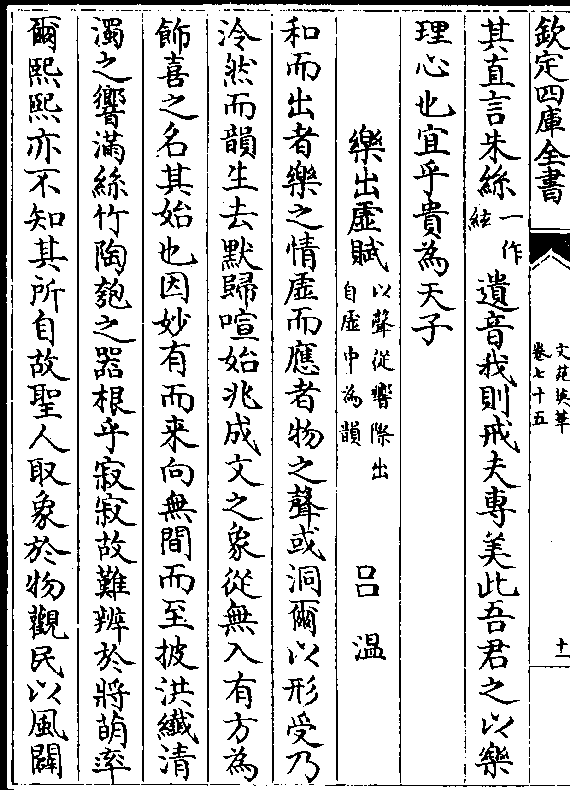 欽定四庫全書
文苑英華
卷七十五
十一
其直言朱絲一作絃遺音我則戒夫專美此吾君之以樂
理心也宜乎貴為天子
樂出虛賦以聲從響際出自虛中為韻 呂溫
和而出者樂之情虛而應者物之聲或洞爾以形受乃
泠然而韻生去默歸喧始兆成文之象從無入有方為
飾喜之名其始也因妙有而来向無間而至披洪纖清
濁之響滿絲竹陶匏之器根乎寂寂故難辨於將萌率
爾熙熙亦不知其所自故聖人取象於物觀民以風闢